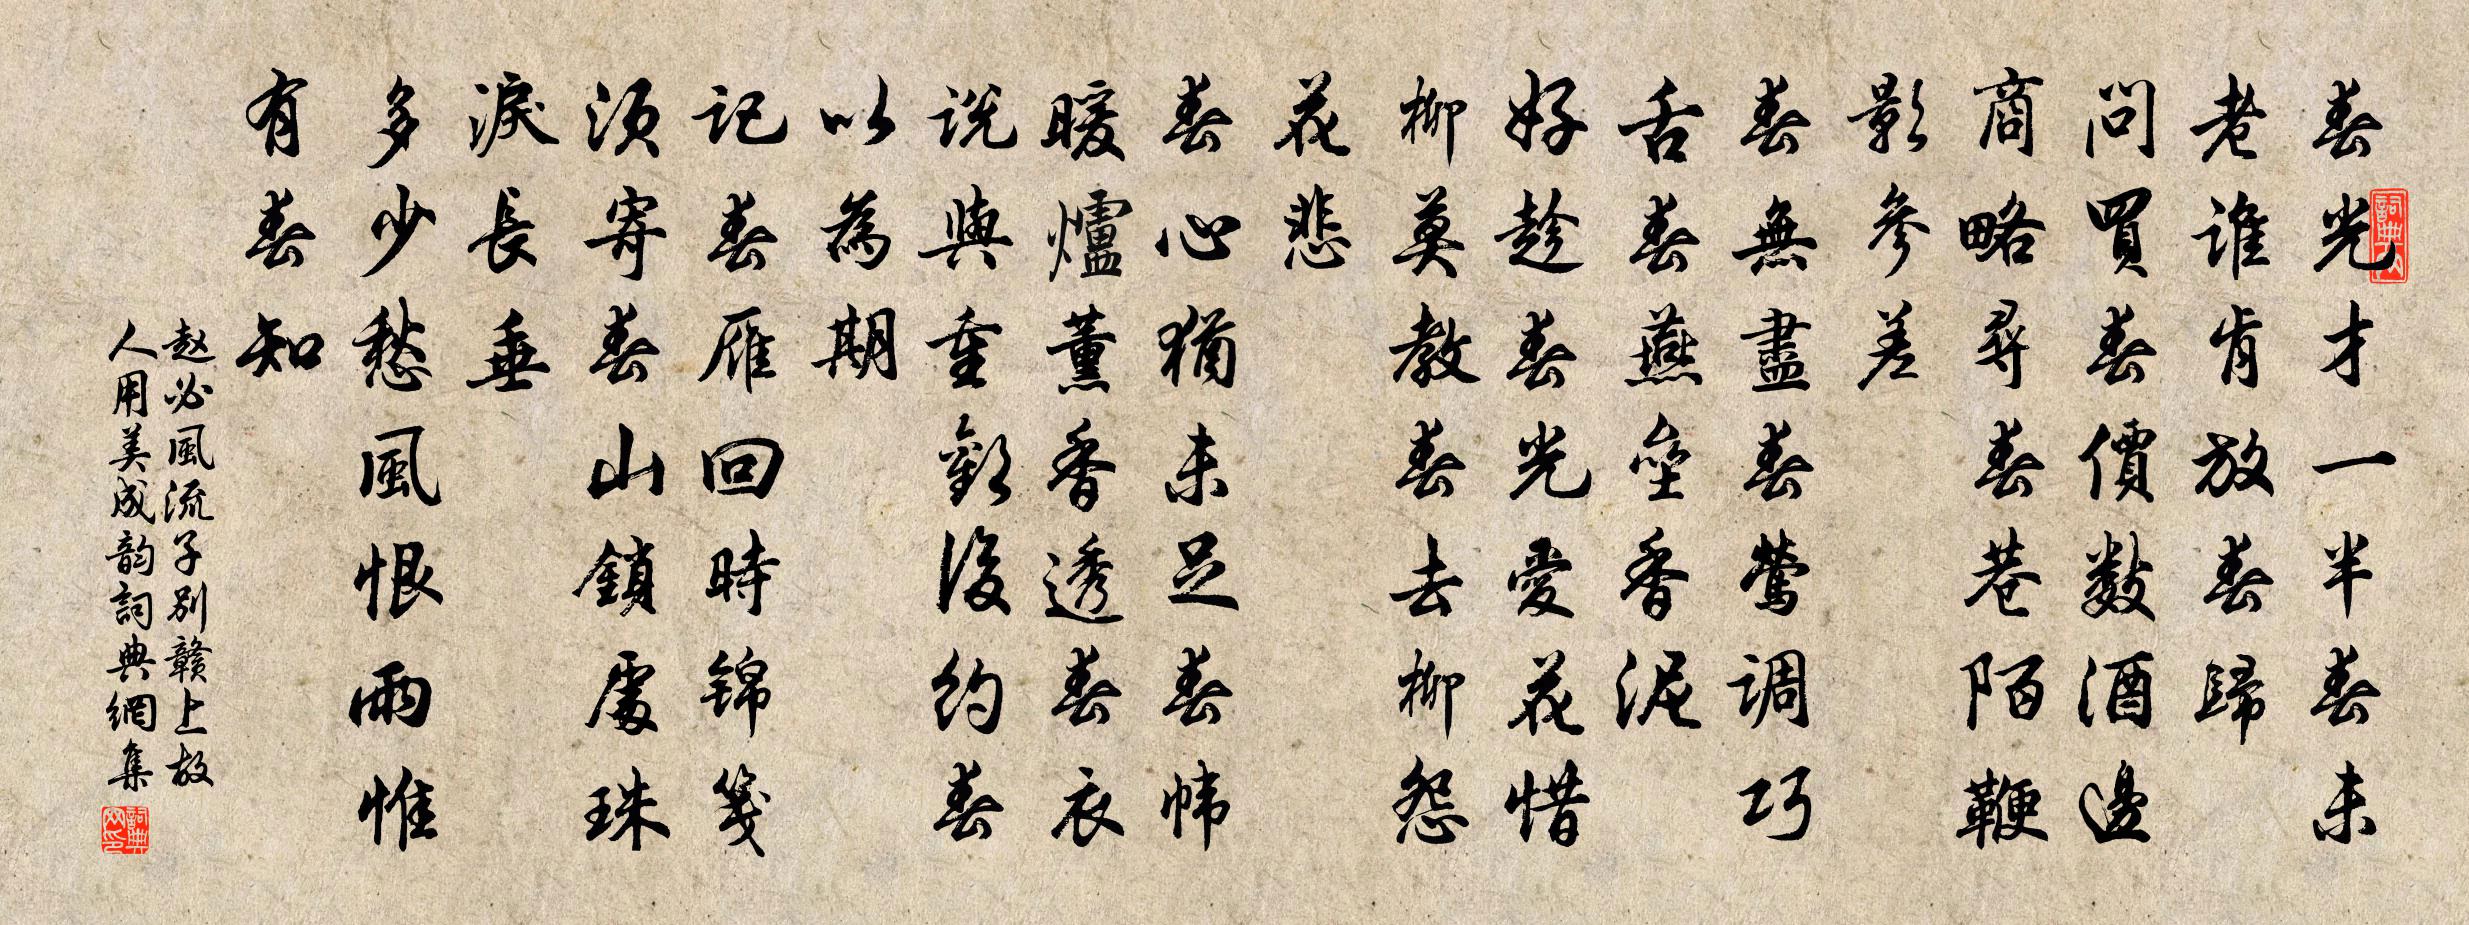 春光才一半春未
老誰肯放春歸
問買春價數酒邊
商略尋春巷陌鞭
影參差
春無盡春鶯調巧
舌春燕壘香泥
好趁春光愛花惜
柳莫教春去柳怨
花悲
春心猶未足春幃
暖爐薰香透春衣
說與重歡後約春
以為期
記春雁回時錦箋
須寄春山鎖處珠
淚長垂
多少愁風恨雨惟
有春知
赵必風流子別赣上故
人用美成韵詞典網集
詞典网
詞典网印